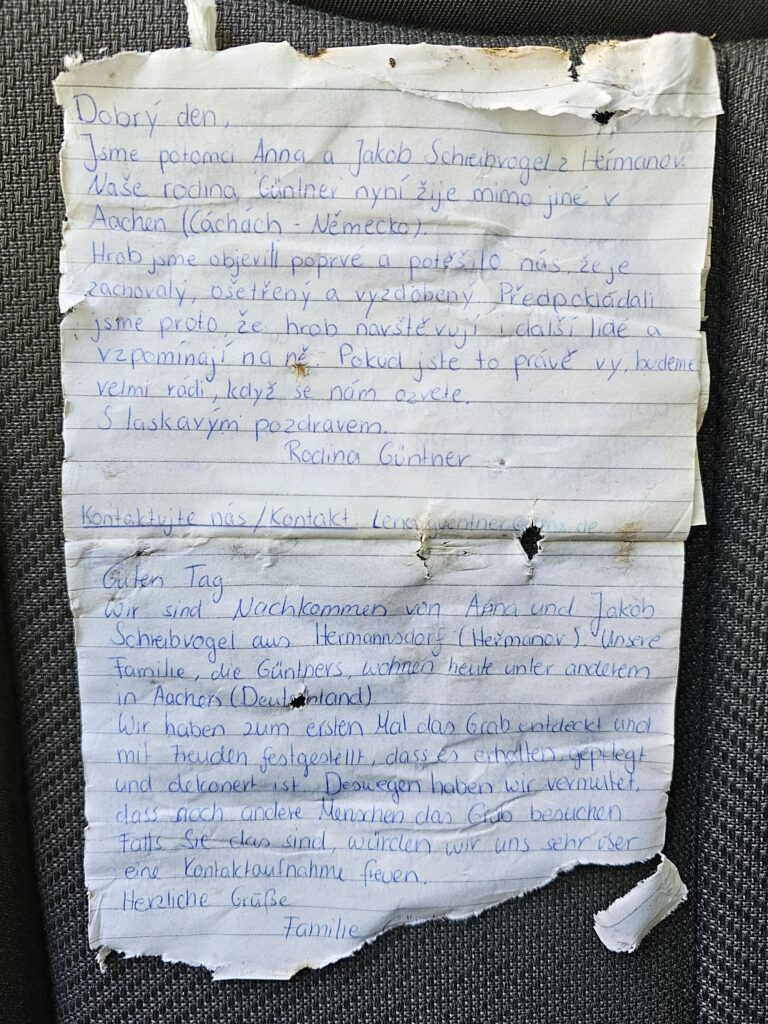 Dobrý den,
Jsme potomci Anna a Jakob Schreibvogel z Heřmanov.
Naše rodina Güntner nyní žije mimo jiné v
Aachen (Cáchách - Německo).
Hrob jsme objevili poprvé a potěšilo nás, že je
zachovalý, ošetřený a vyzdobený. Předpokládali
jsme proto, že hrob navštěvují i další lidé a
vzpomínají na ně. Pokud jste to právě vy, budeme
velmi rádi, když se nám ozvete.
S laskavým pozdravem.
Rodina Güntner
Kontaktujte nás / Kontakt:
Guten Tag
Wir sind Nachkommen von Anna und Jakob
Schreibvogel aus Hermannsdorf (Heřmanov). Unsere
Familie, die Güntners, wohnen heute unter anderem
in Aachen
Wir haben zum ersten Mal das Grab entdeckt und
mit Freuden festgestellt, dass es erhalten, gepflegt
und dekoriert ist. Deswegen haben wir vermutet,
dass noch andere Menschen das Grab besuchen.
Falls Sie das sind, würden wir uns sehr über
eine Kontaktaufnahme freuen.
Herzliche Grüße
Familie